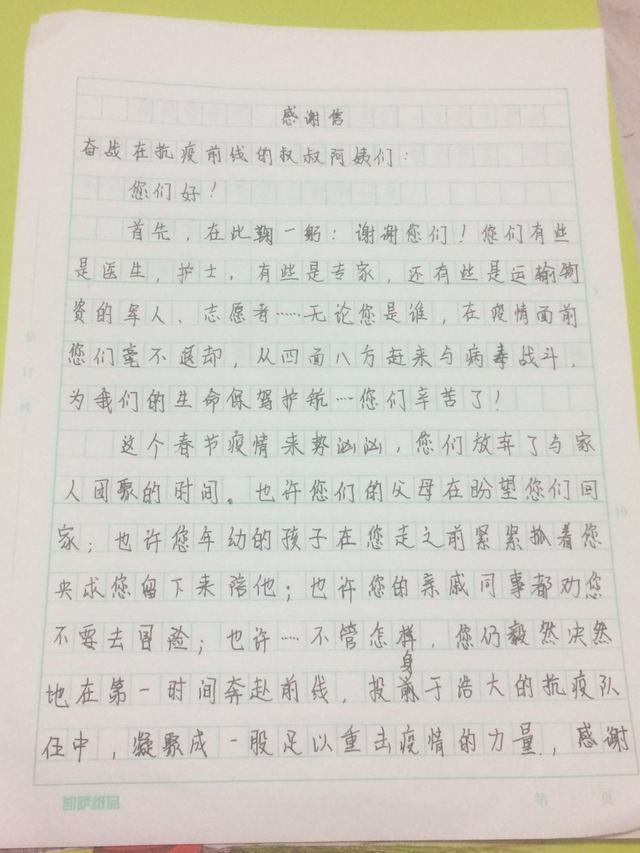 感谢信
奋战在抗疫前线的叔叔阿姨们：
您们好！
首先，在此鞠一躬：谢谢您们！您们有些
是医生，护士，有些是专家，还有些是运输物
资的军人、志愿者……无论您是谁，在疫情面前
您们毫不退却，从四面八方赶来与病毒战斗，
为我们的生命保驾护航…您们辛苦了！
这个春节疫情来势汹汹，您们放弃了与家
人团聚的时间。也许您们的父母在盼望您们回
家；也许您年幼的孩子在您走之前紧紧抓着您
央求您留下来陪他；也许您的亲戚同事都劝您
不要去冒险；也许……不管怎样，您仍毅然决然
地在第一时间奔赴前线，投身于浩大的抗疫队
伍中，凝聚成一股足以重击疫情的力量，感谢
第 页